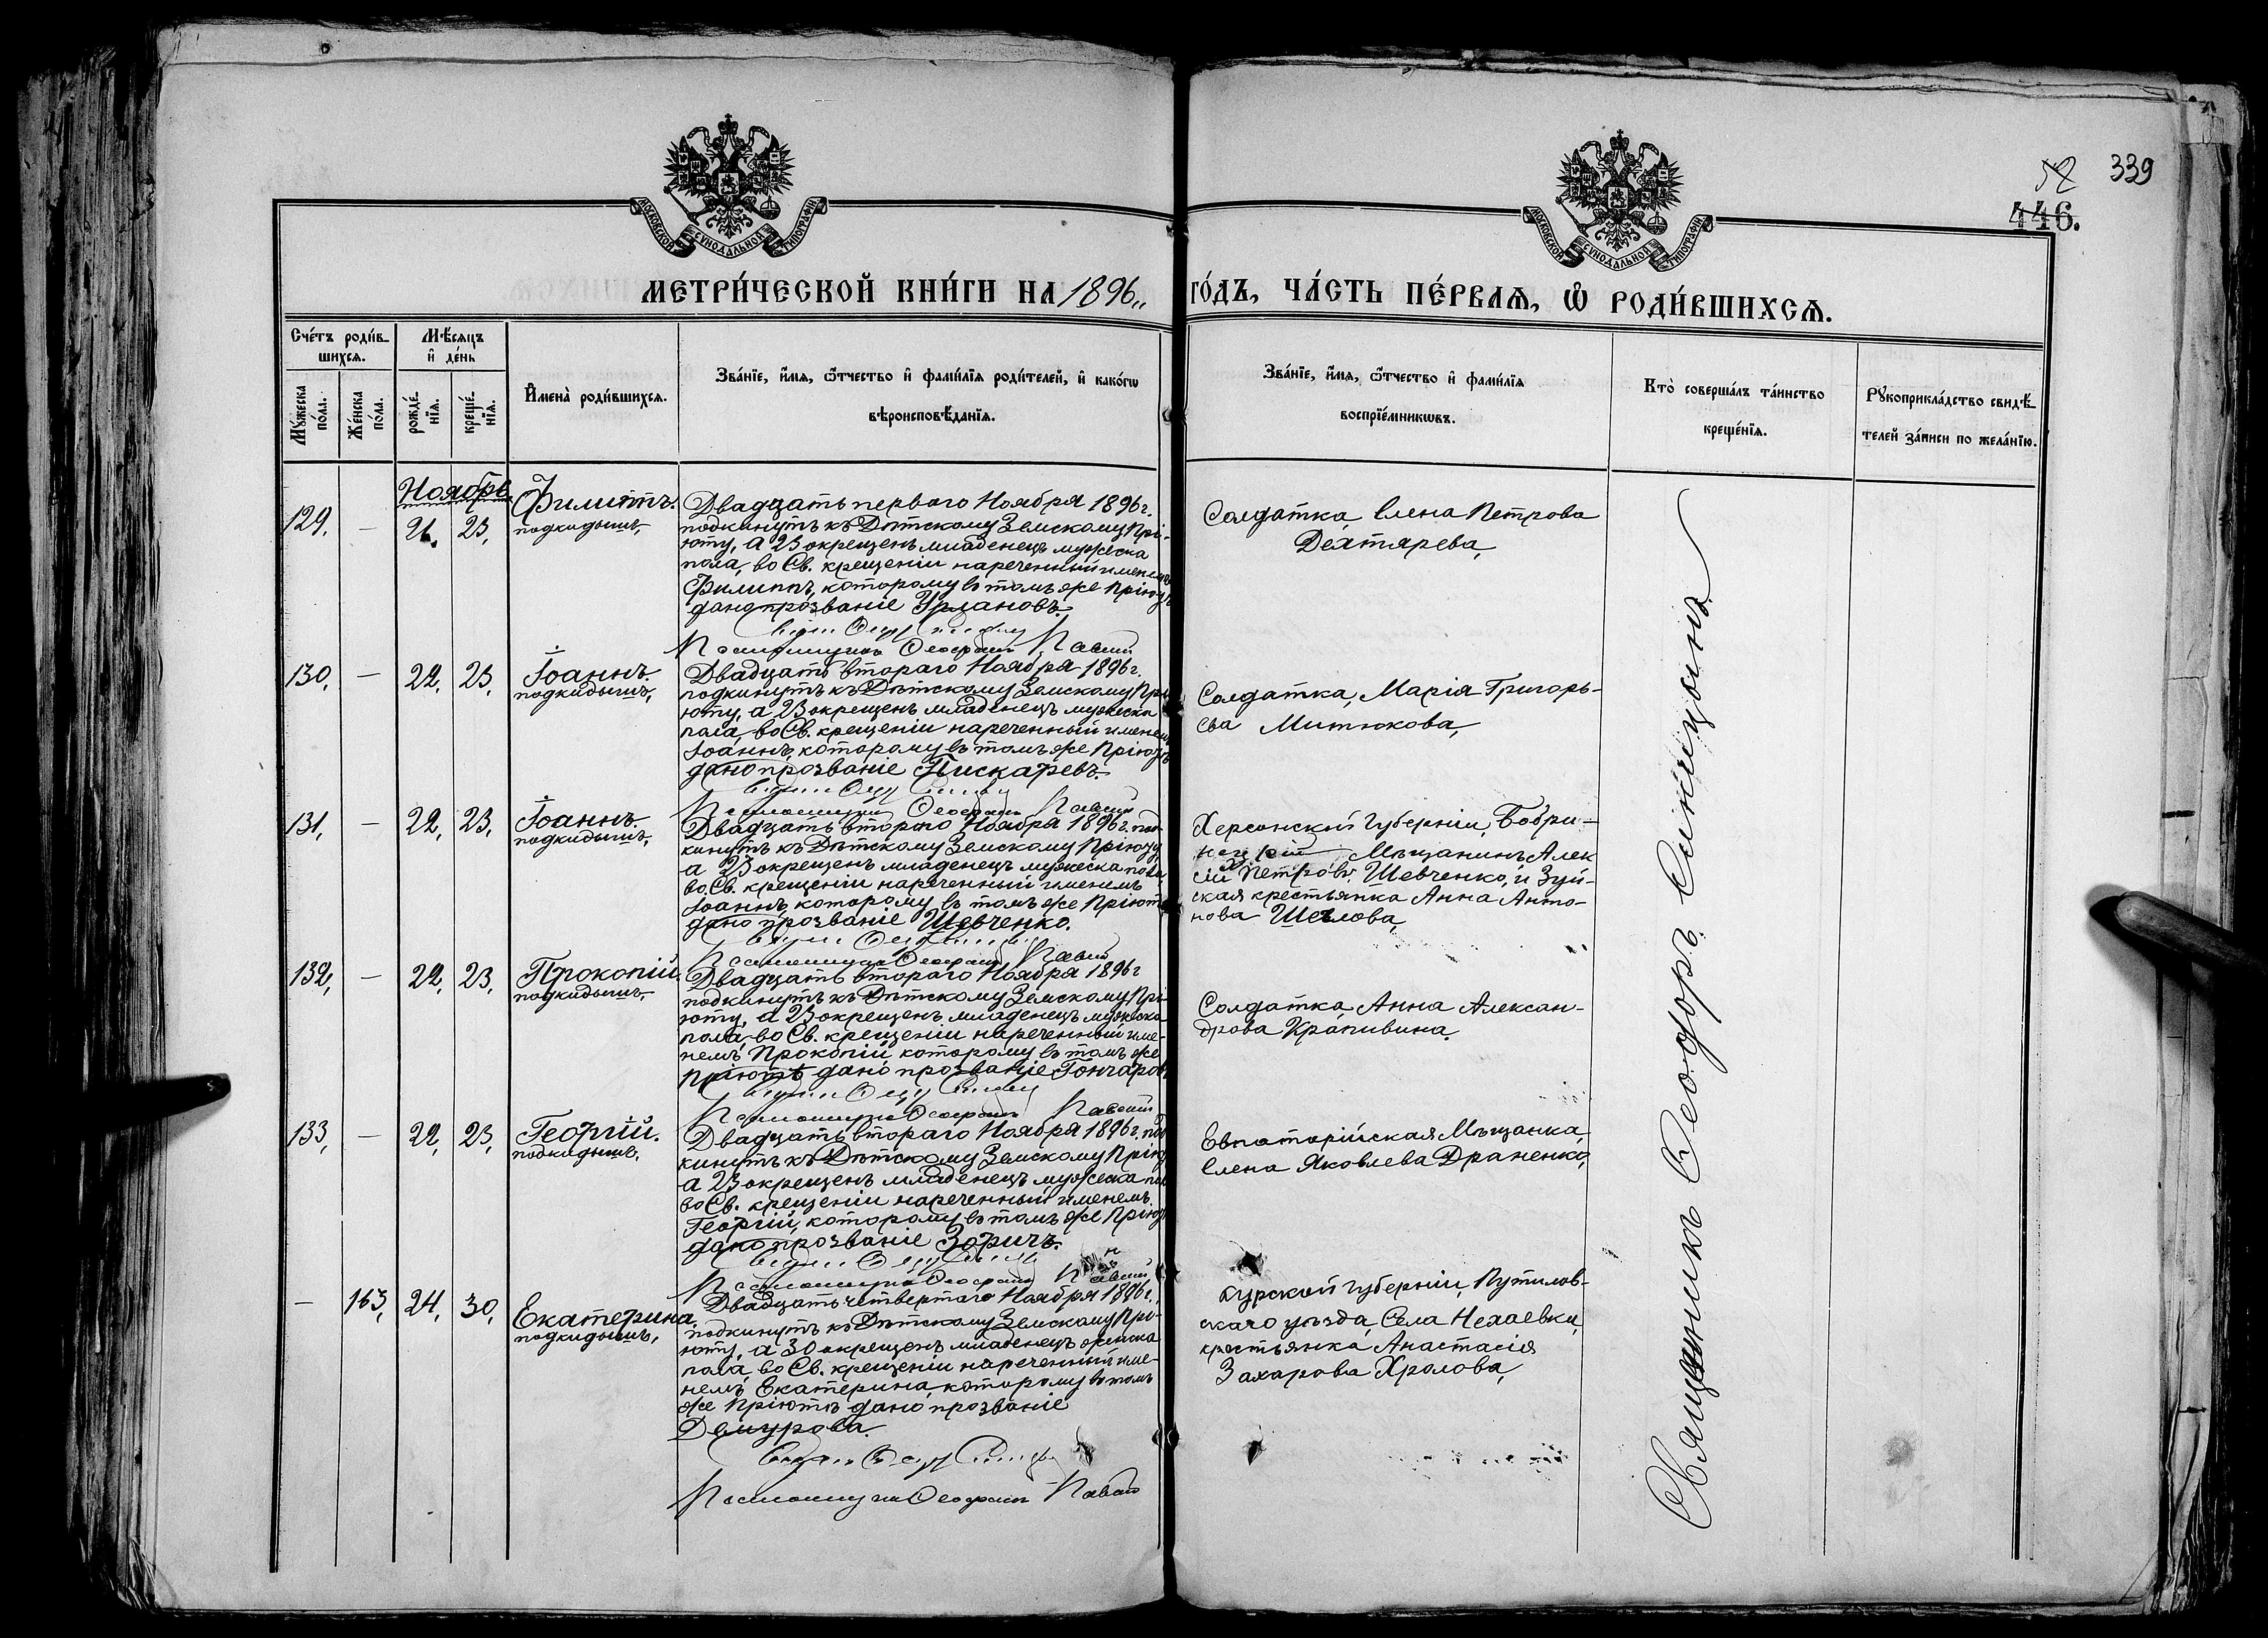 52 339
446.
МОСКОВСКОЙ СѴНОДАЛЬНОЙ ТИПОГРАФІИ
МОСКОВСКОЙ СѴНОДАЛЬНОЙ ТИПОГРАФІИ
МЕТРИ́ЧЕСКОЙ КНИ́ГИ НА 1896 „ ГО́ДЪ, ЧА́СТЬ ПЕ́РВАѦ, Ѡ҆ РОДИ́ВШИХСѦ.
Сче́тъ роди́в-
шихсѧ.
Мꙋ́жеска по́ла.
Же́нска по́ла.
Мѣ́сѧцъ
и҆ де́нь
рожде́нїѧ.
креще́нїѧ.
И҆мена̀ роди́вшихсѧ.
Зва́нїе, и҆́мѧ, ѻ҆́тчество и҆ фами́лїѧ роди́телей, и҆ како́гѡ
вѣроисповѣ́данїѧ.
Зва́нїе, и҆́мѧ, ѻ҆́тчество и҆ фами́лїѧ
воспрїе́мникѡвъ.
Кто̀ соверша́лъ та́инство
креще́нїѧ.
Рꙋкоприкла́дство свидѣ́-
телей за́писи по жела́нїю.
Ноябрь
129, — 21. 23,
Филиппъ.
подкидышъ,
Двадцать перваго Ноября 1896 г.
подкинутъ къ Дѣтскому Земскому Прі-
юту, а 23 окрещенъ младенецъ мужеска
пола, во Св. крещеніи нареченный именемъ
Филиппъ, которому въ томъ же Пріютѣ
дано прозваніе
Солдатка, Елена Петрова
Дехтярева,
130, — 22, 23,
Іоаннъ.
подкидышъ,
Двадцать втораго Ноября 1896 г.
подкинутъ къ Дѣтскому Земскому Прі-
юту, а 23 окрещенъ младенецъ мужеска
пола, во Св. крещеніи нареченный именемъ
Іоаннъ, которому въ томъ же Пріютѣ
дано прозваніе Пискаревъ.
Солдатка, Марія Григорь-
ева Митюкова,
131, — 22, 23,
Іоаннъ.
подкидышъ,
Двадцать втораго Ноября 1896 г. под-
кинутъ къ Дѣтскому Земскому Пріюту
а 23 окрещенъ младенецъ мужеска пола,
во Св. крещеніи нареченный именемъ
Іоаннъ, которому въ томъ же Пріютѣ
дано прозваніе Шевченко.
Херсонской Губерніи, Бобри-
нецкій Мѣщанинъ Алек
сій Петровъ Шевченко, и Зуй-
ская крестьянка Анна Анто-
нова Щеглова,
132, — 22, 23,
Прокопій.
подкидышъ,
Двадцать втораго Ноября 1896 г
подкинутъ къ Дѣтскому Земскому Прі-
юту, а 23 окрещенъ младенецъ мужеска
пола, во Св. крещеніи нареченный име-
немъ Прокопій, которому въ томъ же
Пріютѣ дано прозваніе Гончаровъ
Солдатка Анна Алексан-
дрова Крапивина.
133, — 22, 23,
Георгій.
подкидышъ,
Двадцать втораго Ноября 1896 г. под
кинутъ къ Дѣтскому Земскому Пріюту
а 23 окрещенъ младенецъ мужеска пола
во Св. крещеніи нареченный именемъ
Георгій, которому въ томъ же Пріютѣ
дано прозваніе Зоричъ.
Евпаторійская Мѣщанка
Елена Яковлева Драненко,
— 163, 24, 30,
Екатерина.
подкидышъ,
Двадцать четвертаго Ноября 1896 г.,
подкинутъ къ Дѣтскому Земскому Прі-
юту, а 30 окрещенъ младенецъ женска
пола, во Св. крещеніи нареченный име-
немъ Екатерина, которому въ томъ
же Пріютѣ дано прозваніе
Демурова.
Курской Губерніи, Путилов-
скаго уѣзда, Села Нехаевки,
крестьянка Анастасія
Захарова Хролова,
Священникъ Ѳеодоръ Синицынъ